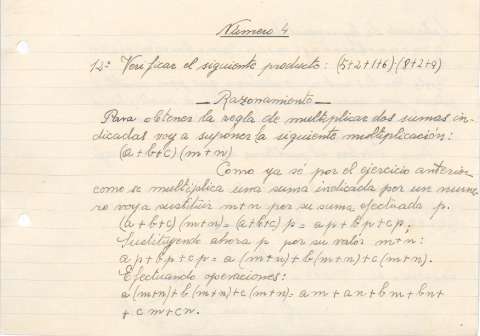 Número 4
12º Verificar el siguiente producto: (5+2+1+6)·(8+2+9)
Razonamiento
Para obtener la regla de multiplicar dos sumas in-
dicadas voy a suponer la siguiente multiplicación:
(a+b+c)(m+n)
Como ya sé por el ejercicio anterior
como se multiplica una suma indicada por un nume-
ro voy a sustituir m+n por su suma efectuada p.
(a+b+c)(m+n)=(a+b+c)p=ap+bp+cp;
Sustituyendo ahora p por su valor m+n:
ap+bp+cp=a(m+n)+b(m+n)+c(m+n).
Efectuando operaciones:
a(m+n)+b(m+n)+c(m+n)=am+an+bm+bn+
+cm+cn.